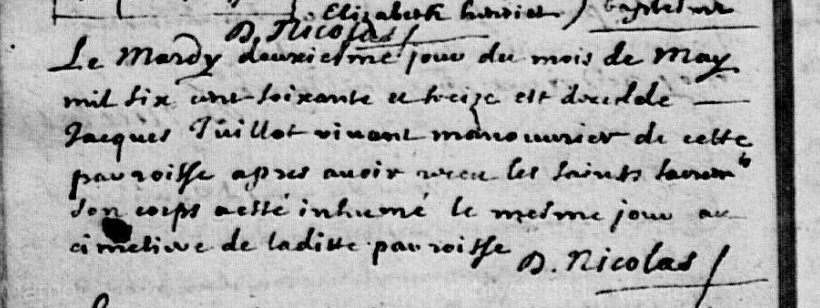 Elizabeth henriet / baptesme
D. Nicolas
Le Mardy deuxiesme jour du mois de May
mil six cent soixante et treize est decedde
Jacques Tuillot vivant manouvrier de cette
parroisse apres avoir receu les saints sacrem ts
son corps a esté inhumé le mesme jour au
cimetiere de laditte parroisse
D. Nicolas